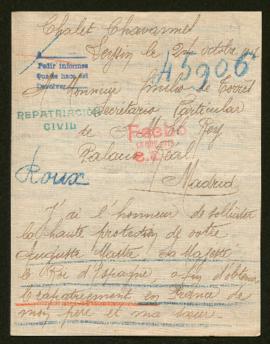 Chalet Chavannes
Leysin le 2 octobre
45906
A
Pedir informes
Que se han de
Devolver
A Monsieur Emilio de Torres
Secretario Particular
REPATRIACIÓN
CIVIL
de S. M. le Roy
Palacio Real
Roux
Madrid
J'ai l'honneur de solliciter
la haute protection de votre
Auguste Maître Sa Majesté
le Roi d'Espagne afin d'obtenir
le rapatriement en France de
mon père et ma sœur